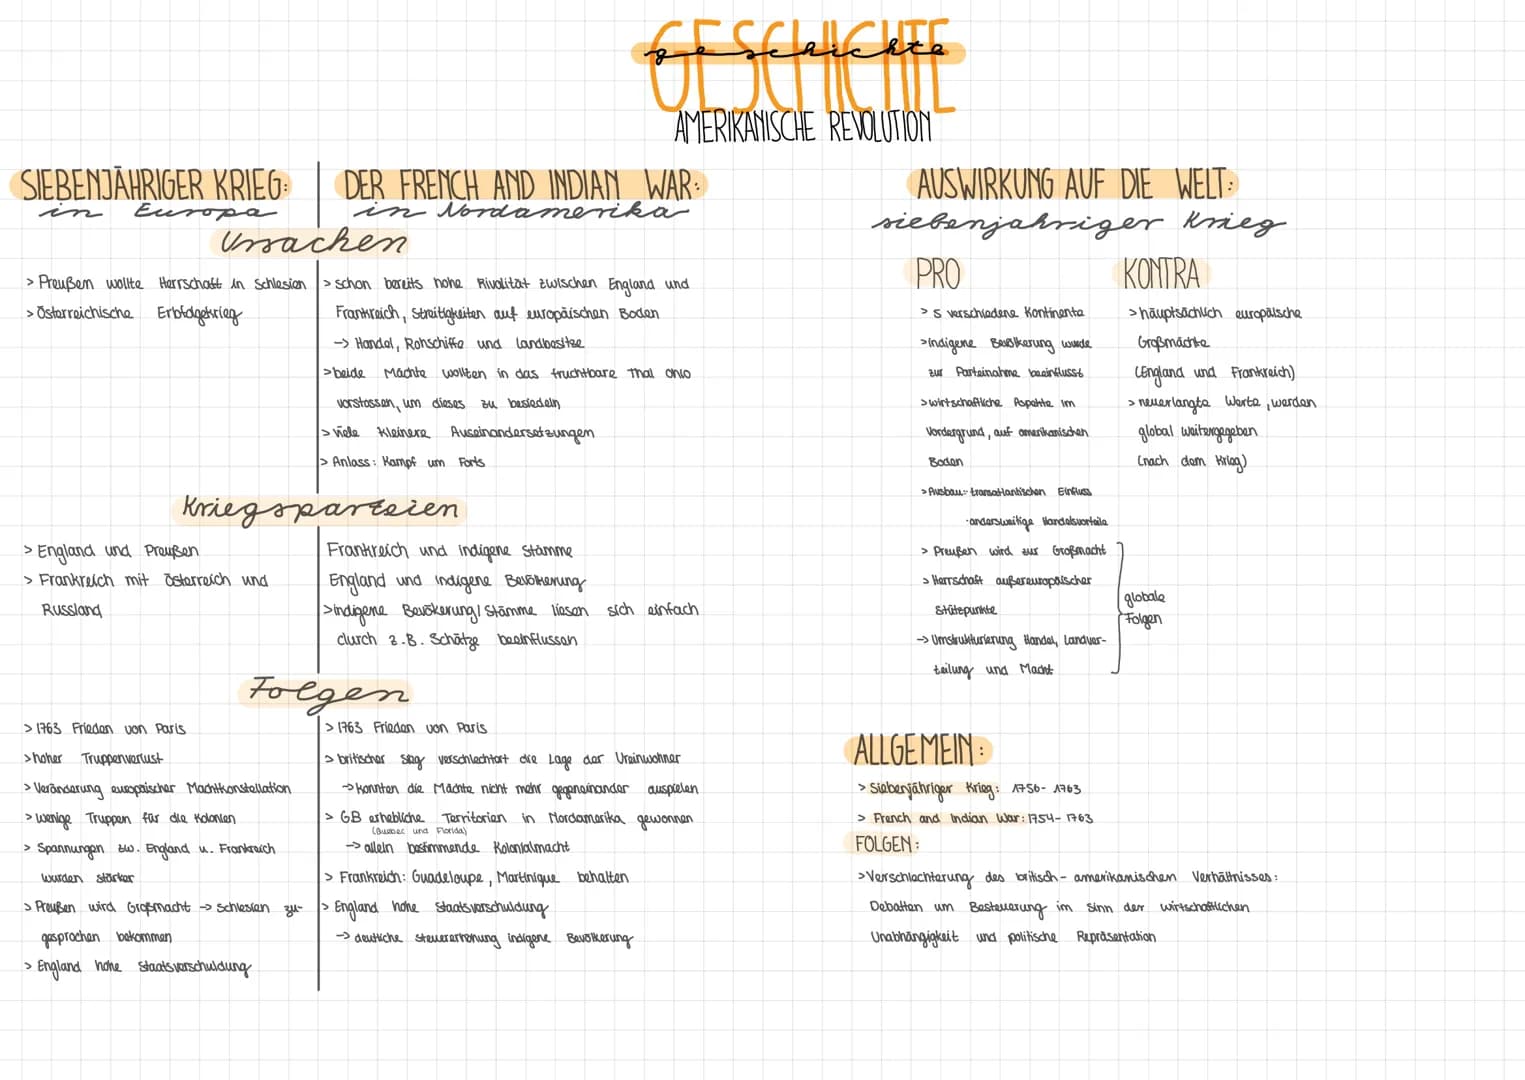 GESCHICHTE
geschichte
AMERIKANISCHE REVOLUTION
SIEBENJÄHRIGER KRIEG:
in Europa
DER FRENCH AND INDIAN WAR:
in Nordamerika
Ursachen
> Preußen wollte Herrschaft in Schlesien
> Österreichische Erbfolgekrieg
> schon bereits hohe Rivalität zwischen England und
Frankreich, Streitigkeiten auf europäischen Boden
-> Handel, Rohschiffe und Landbesitze
> beide Mächte wollten in das fruchtbare Thal Ohio
vorstossen, um dieses zu besiedeln
> viele kleinere Auseinandersetzungen
> Anlass: Kampf um Forts
Kriegsparteien
> England und Preußen
> Frankreich mit Österreich und
Russland
Frankreich und indigene Stämme
England und indigene Bevölkerung
> indigene Bevökerung/ Stämme liesen sich einfach
durch z.B. Schätze beeinflussen
Folgen
> 1763 Frieden von Paris
> hoher Truppenverlust
> Veränderung europäischer Machtkonstellation
> wenige Truppen für die Kolonien
> Spannungen zw. England u. Frankreich
wurden stärker
> Preußen wird Großmacht -> Schlesien zu-
gesprochen bekommen
> England hohe Staatsverschuldung
> 1763 Frieden von Paris
> britischer Sieg verschlechtert die Lage der Ureinwohner
-> konnten die Mächte nicht mehr gegeneinander auspielen
> GB erhebliche Territorien in Nordamerika gewonnen
(Quebec und Florida)
-> allein bestimmende Kolonialmacht
> Frankreich: Guadeloupe, Martinique behalten
> England hohe Staatsverschuldung
-> deutliche Steuererhöhung indigene Bevölkerung
AUSWIRKUNG AUF DIE WELT:
siebenjahriger Krieg
PRO
> 5 verschiedene Kontinente
> indigene Bevölkerung wurde
zur Parteinahme beeinflusst
> wirtschaftliche Aspekte im
Vordergrund, auf amerikanischen
Boden
> Ausbau: · transatlantischen Einfluss
· andersweitige Handelsvorteile
> Preußen wird zur Großmacht
> Herrschaft außereuropäischer
Stützpunkte
-> Umstrukturierung Handel, Landver-
teilung und Macht
globale
Folgen
KONTRA
> häuptsächlich europäische
Großmächte
(England und Frankreich)
> neuerlangte Werte, werden
global weitergegeben
(nach dem Krieg)
ALLGEMEIN:
> Siebenjähriger Krieg: 1756- 1763
> French and Indian War: 1754- 1763
FOLGEN:
> Verschlechterung des britisch- amerikanischen Verhältnisses:
Debatten um Besteuerung im Sinn der wirtschaftlichen
Unabhängigkeit und politische Repräsentation